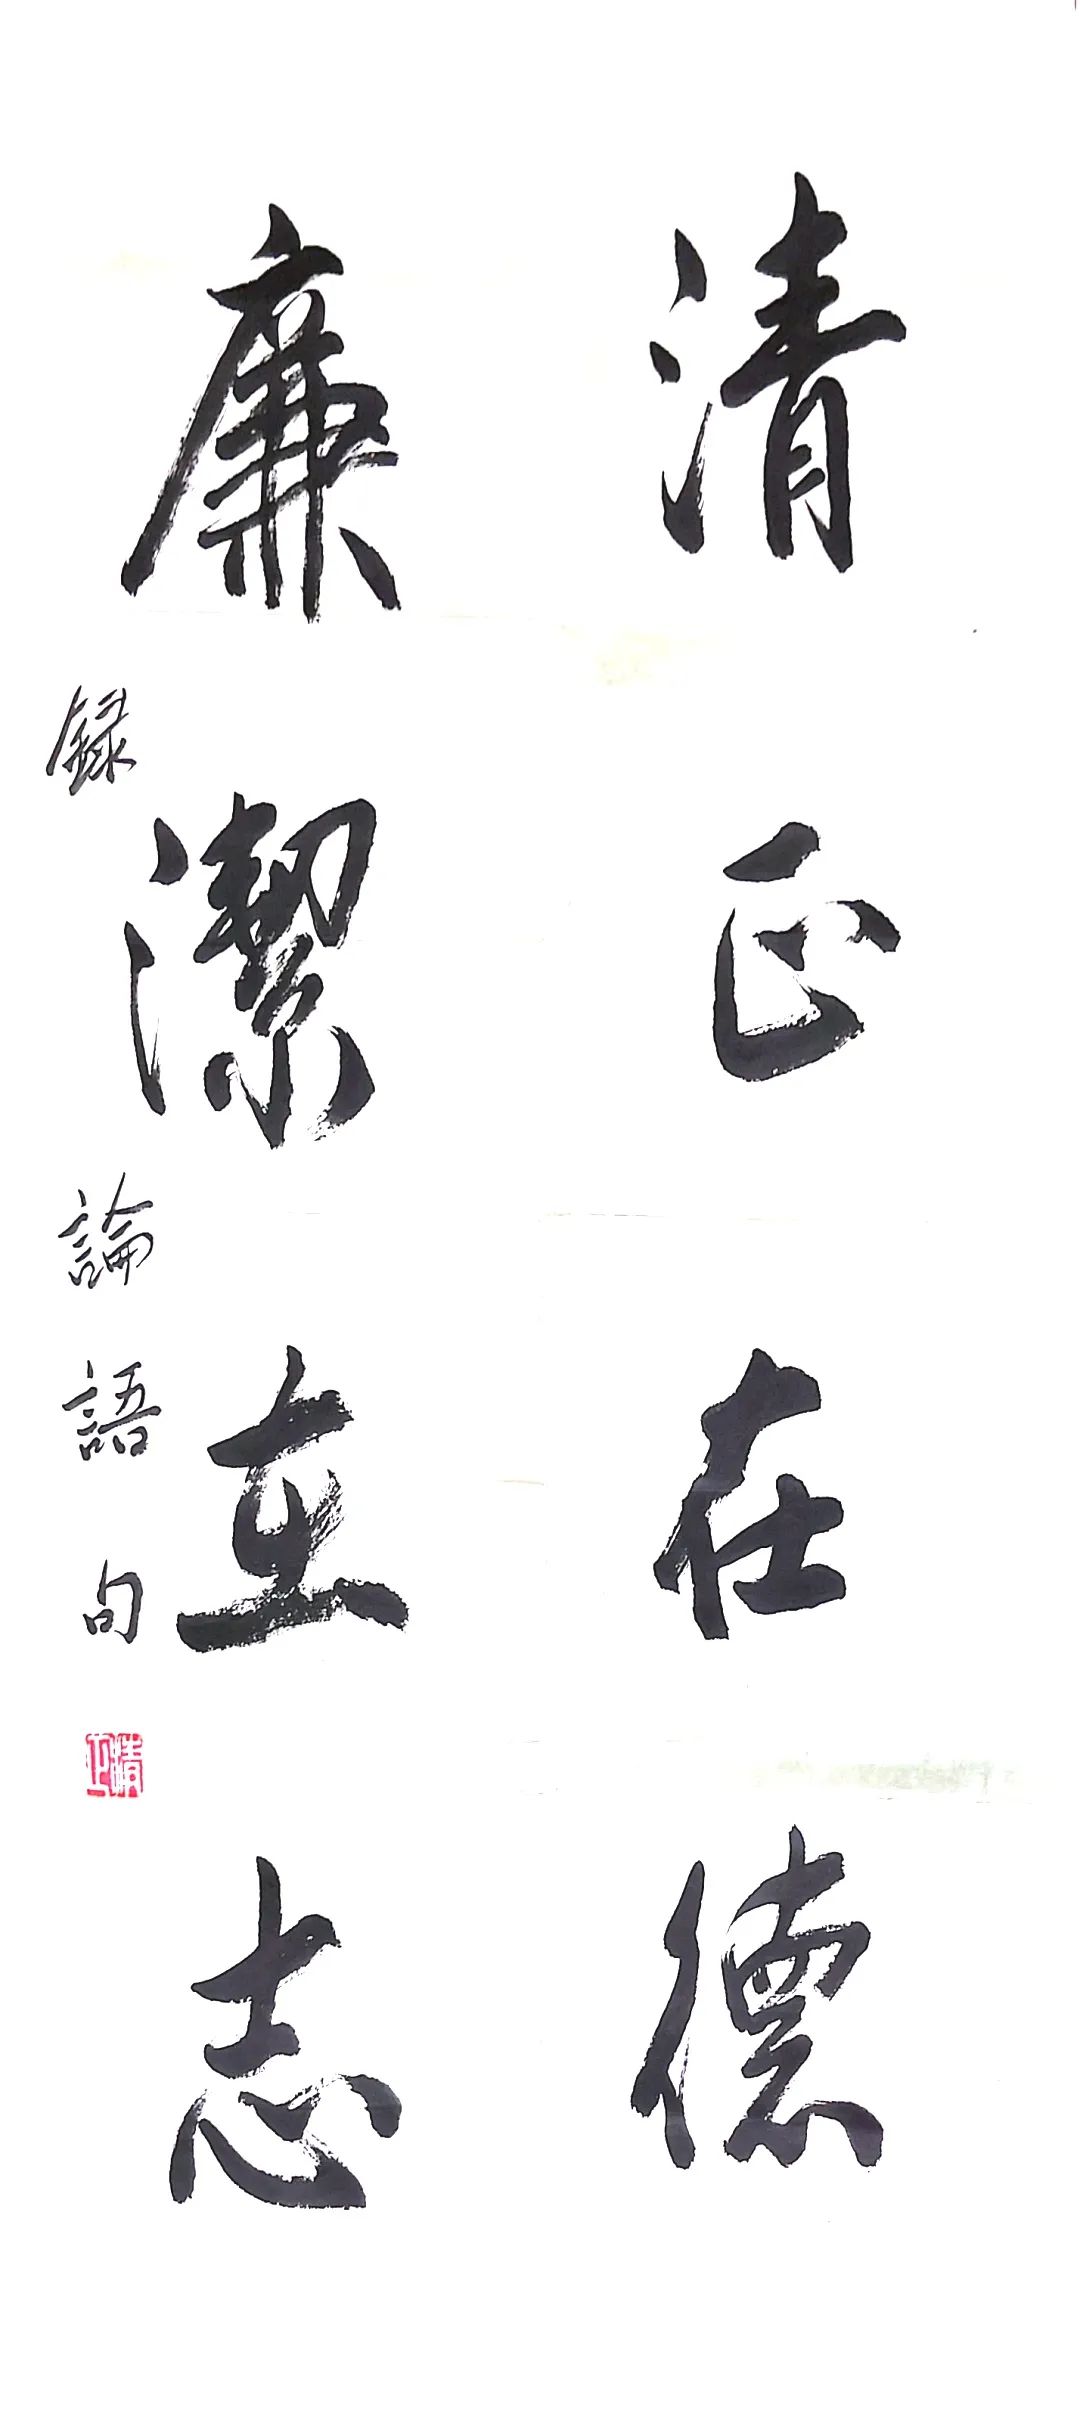 清正在德
廉潔立志
録論語句